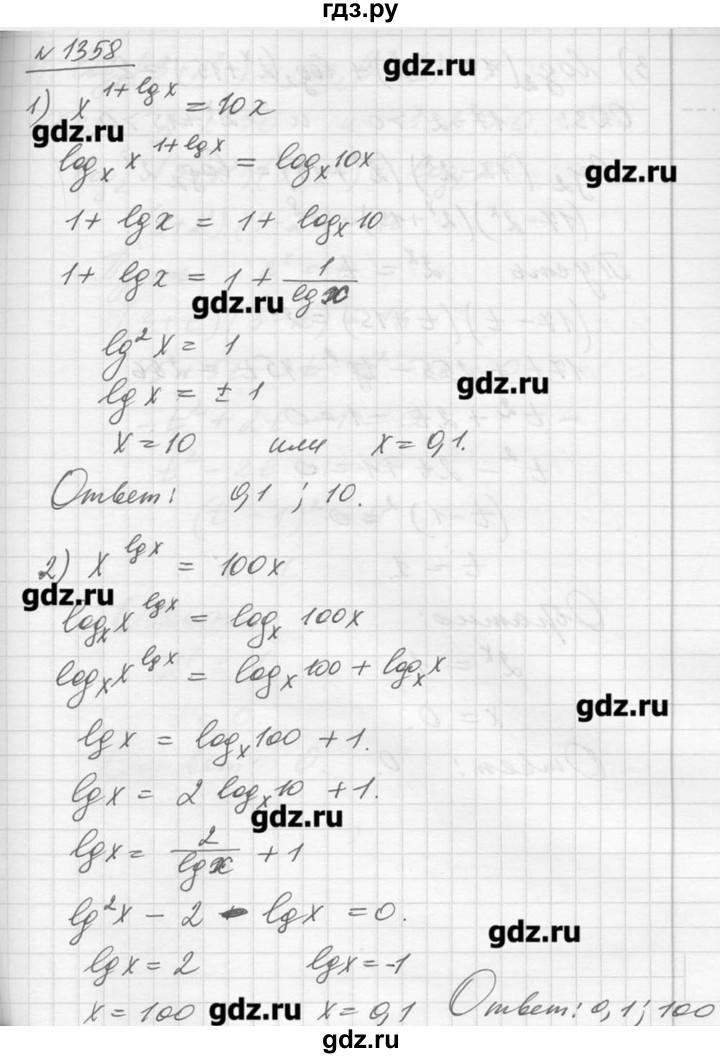 гдз.ру
№ 1358
gdz.ru
1) x^(1+lgx) = 10x
gdz.ru
log_x x^(1+lgx) = log_x 10x
gdz.ru
1 + lgx = 1 + log_x 10
1 + lgx = 1 + 1/lgx
gdz.ru
lg²x = 1
gdz.ru
lgx = ±1
x = 10 или x = 0,1.
Ответ: 0,1 ; 10.
2) x^(lgx) = 100x
gdz.ru
log_x x^(lgx) = log_x 100x
log_x x^(lgx) = log_x 100 + log_x x
gdz.ru
lgx = log_x 100 + 1.
lgx = 2 log_x 10 + 1.
gdz.ru
lgx = 2/lgx + 1
lg²x - 2 - lgx = 0.
gdz.ru
lgx = 2 lgx = -1
x = 100 gdz.ru x = 0,1 Ответ: 0,1; 100
gdz.ru